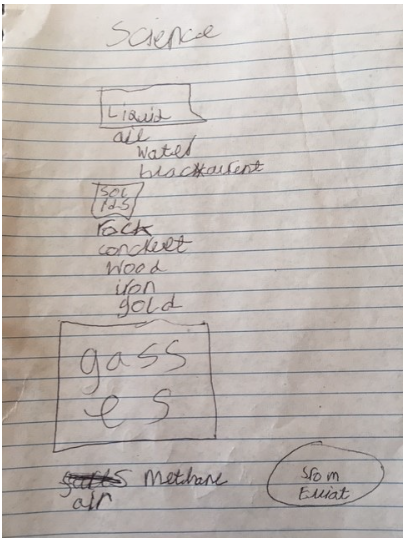 Science
Liquid
oil
water
blackcurent
SOL
IdS
rock
conckret
wood
iron
gold
gass
es
Methane
air
from